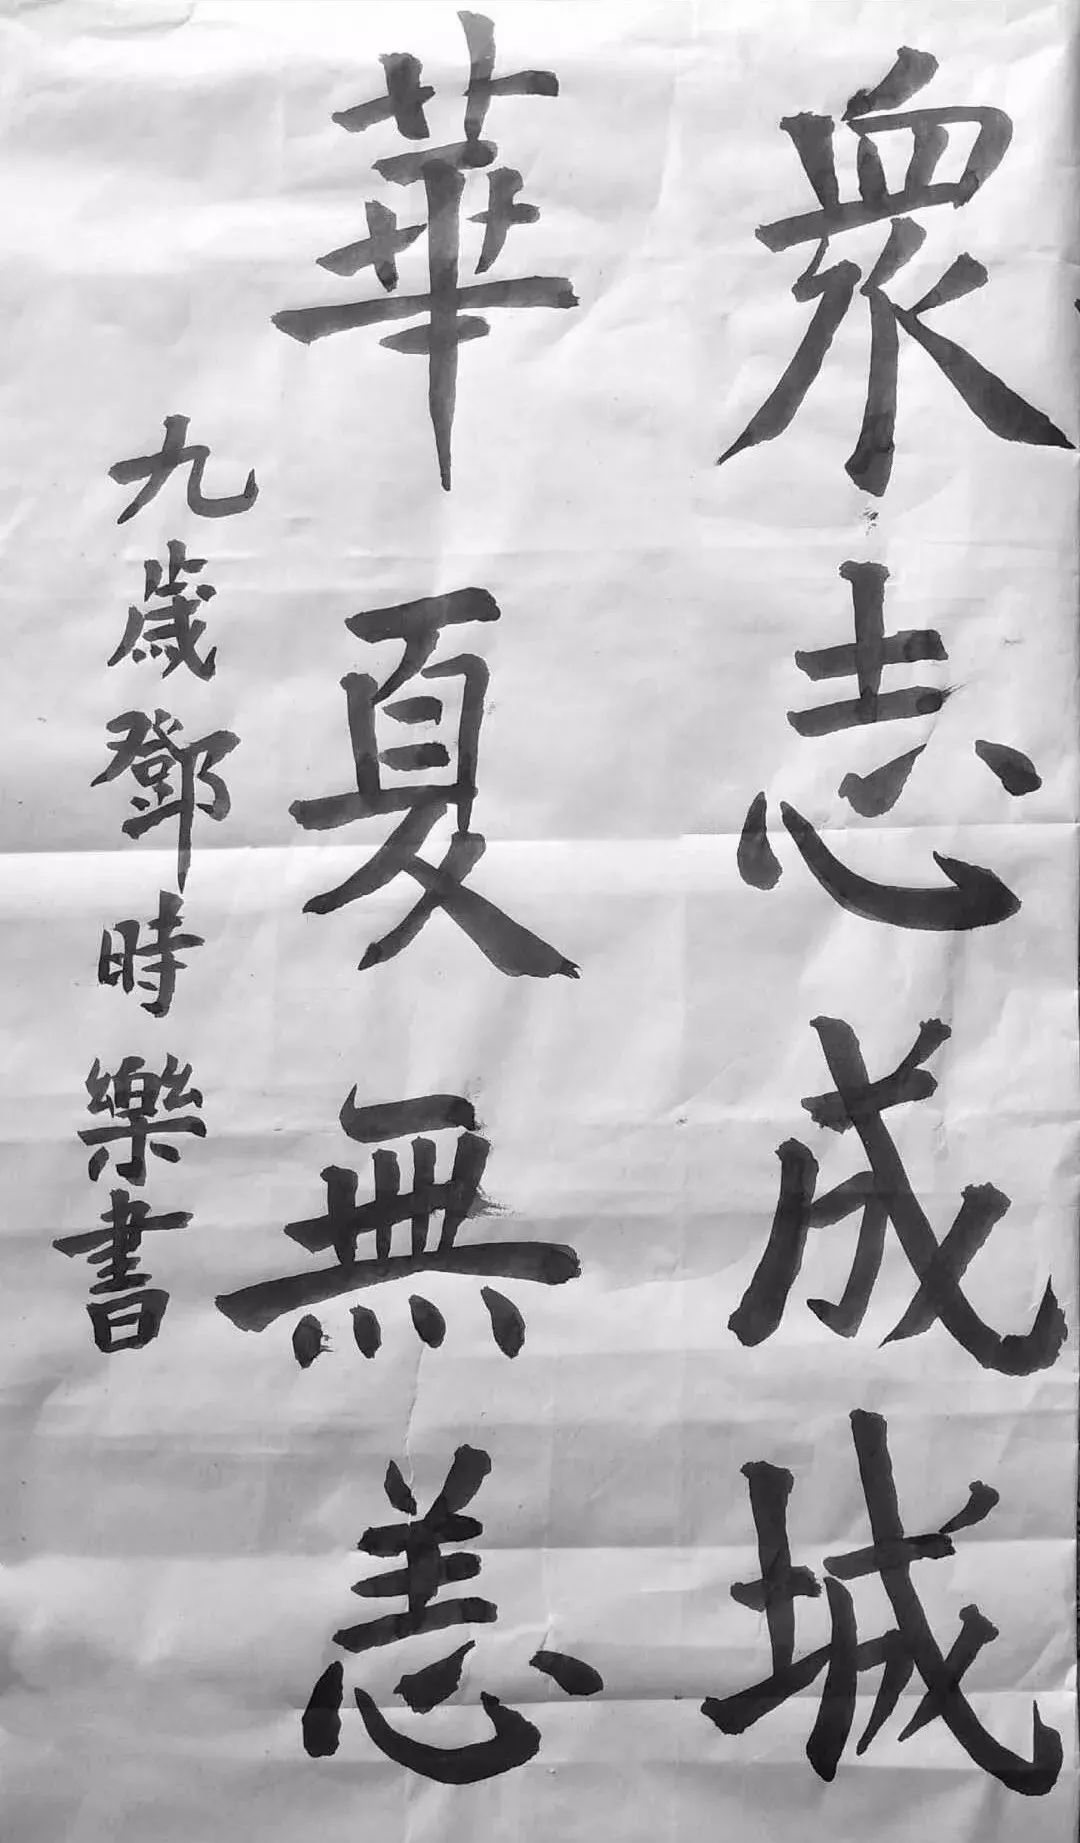 眾志成城
華夏無恙
九歲鄧時樂書